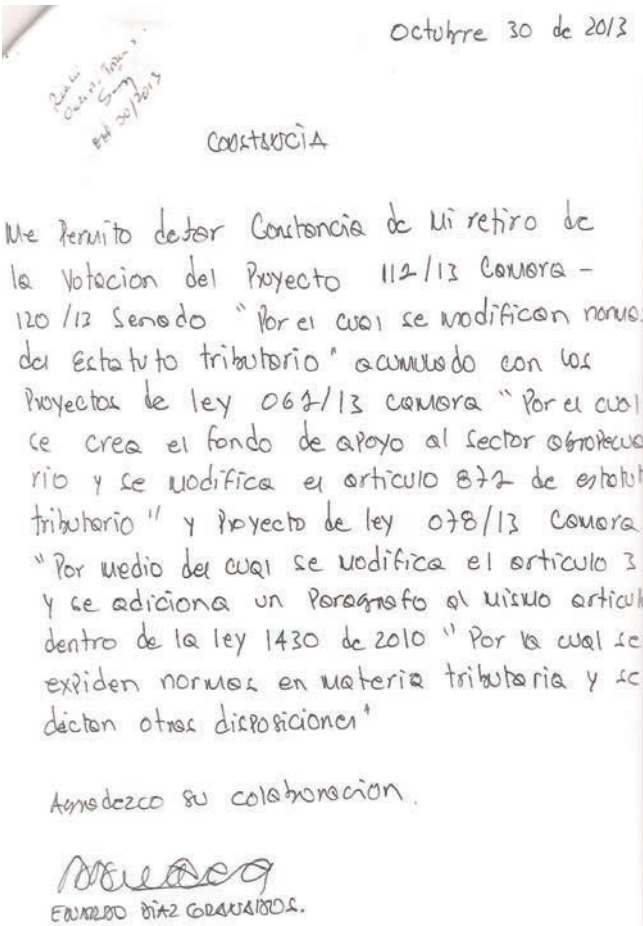 Octubre 30 de 2013
30/2013
Constancia
Me Permito dejar Constancia de mi retiro de
la Votacion del Proyecto 112/13 Camara -
120/13 Senado "Por el cual se modifican normas
del Estatuto tributario" acumulado con los
Proyectos de ley 067/13 camara "Por el cual
se crea el fondo de apoyo al sector agropecua
rio y se modifica el articulo 872 de estatut
tributario" y Proyecto de ley 078/13 Camara
"Por medio del cual se modifica el articulo 3
y se adiciona un Paragrafo al mismo articul
dentro de la ley 1430 de 2010 "Por la cual se
expiden normas en materia tributaria y se
dictan otras disposiciones"
Agradezco su colaboracion.
EDUARDO DIAZ GRANADOS.